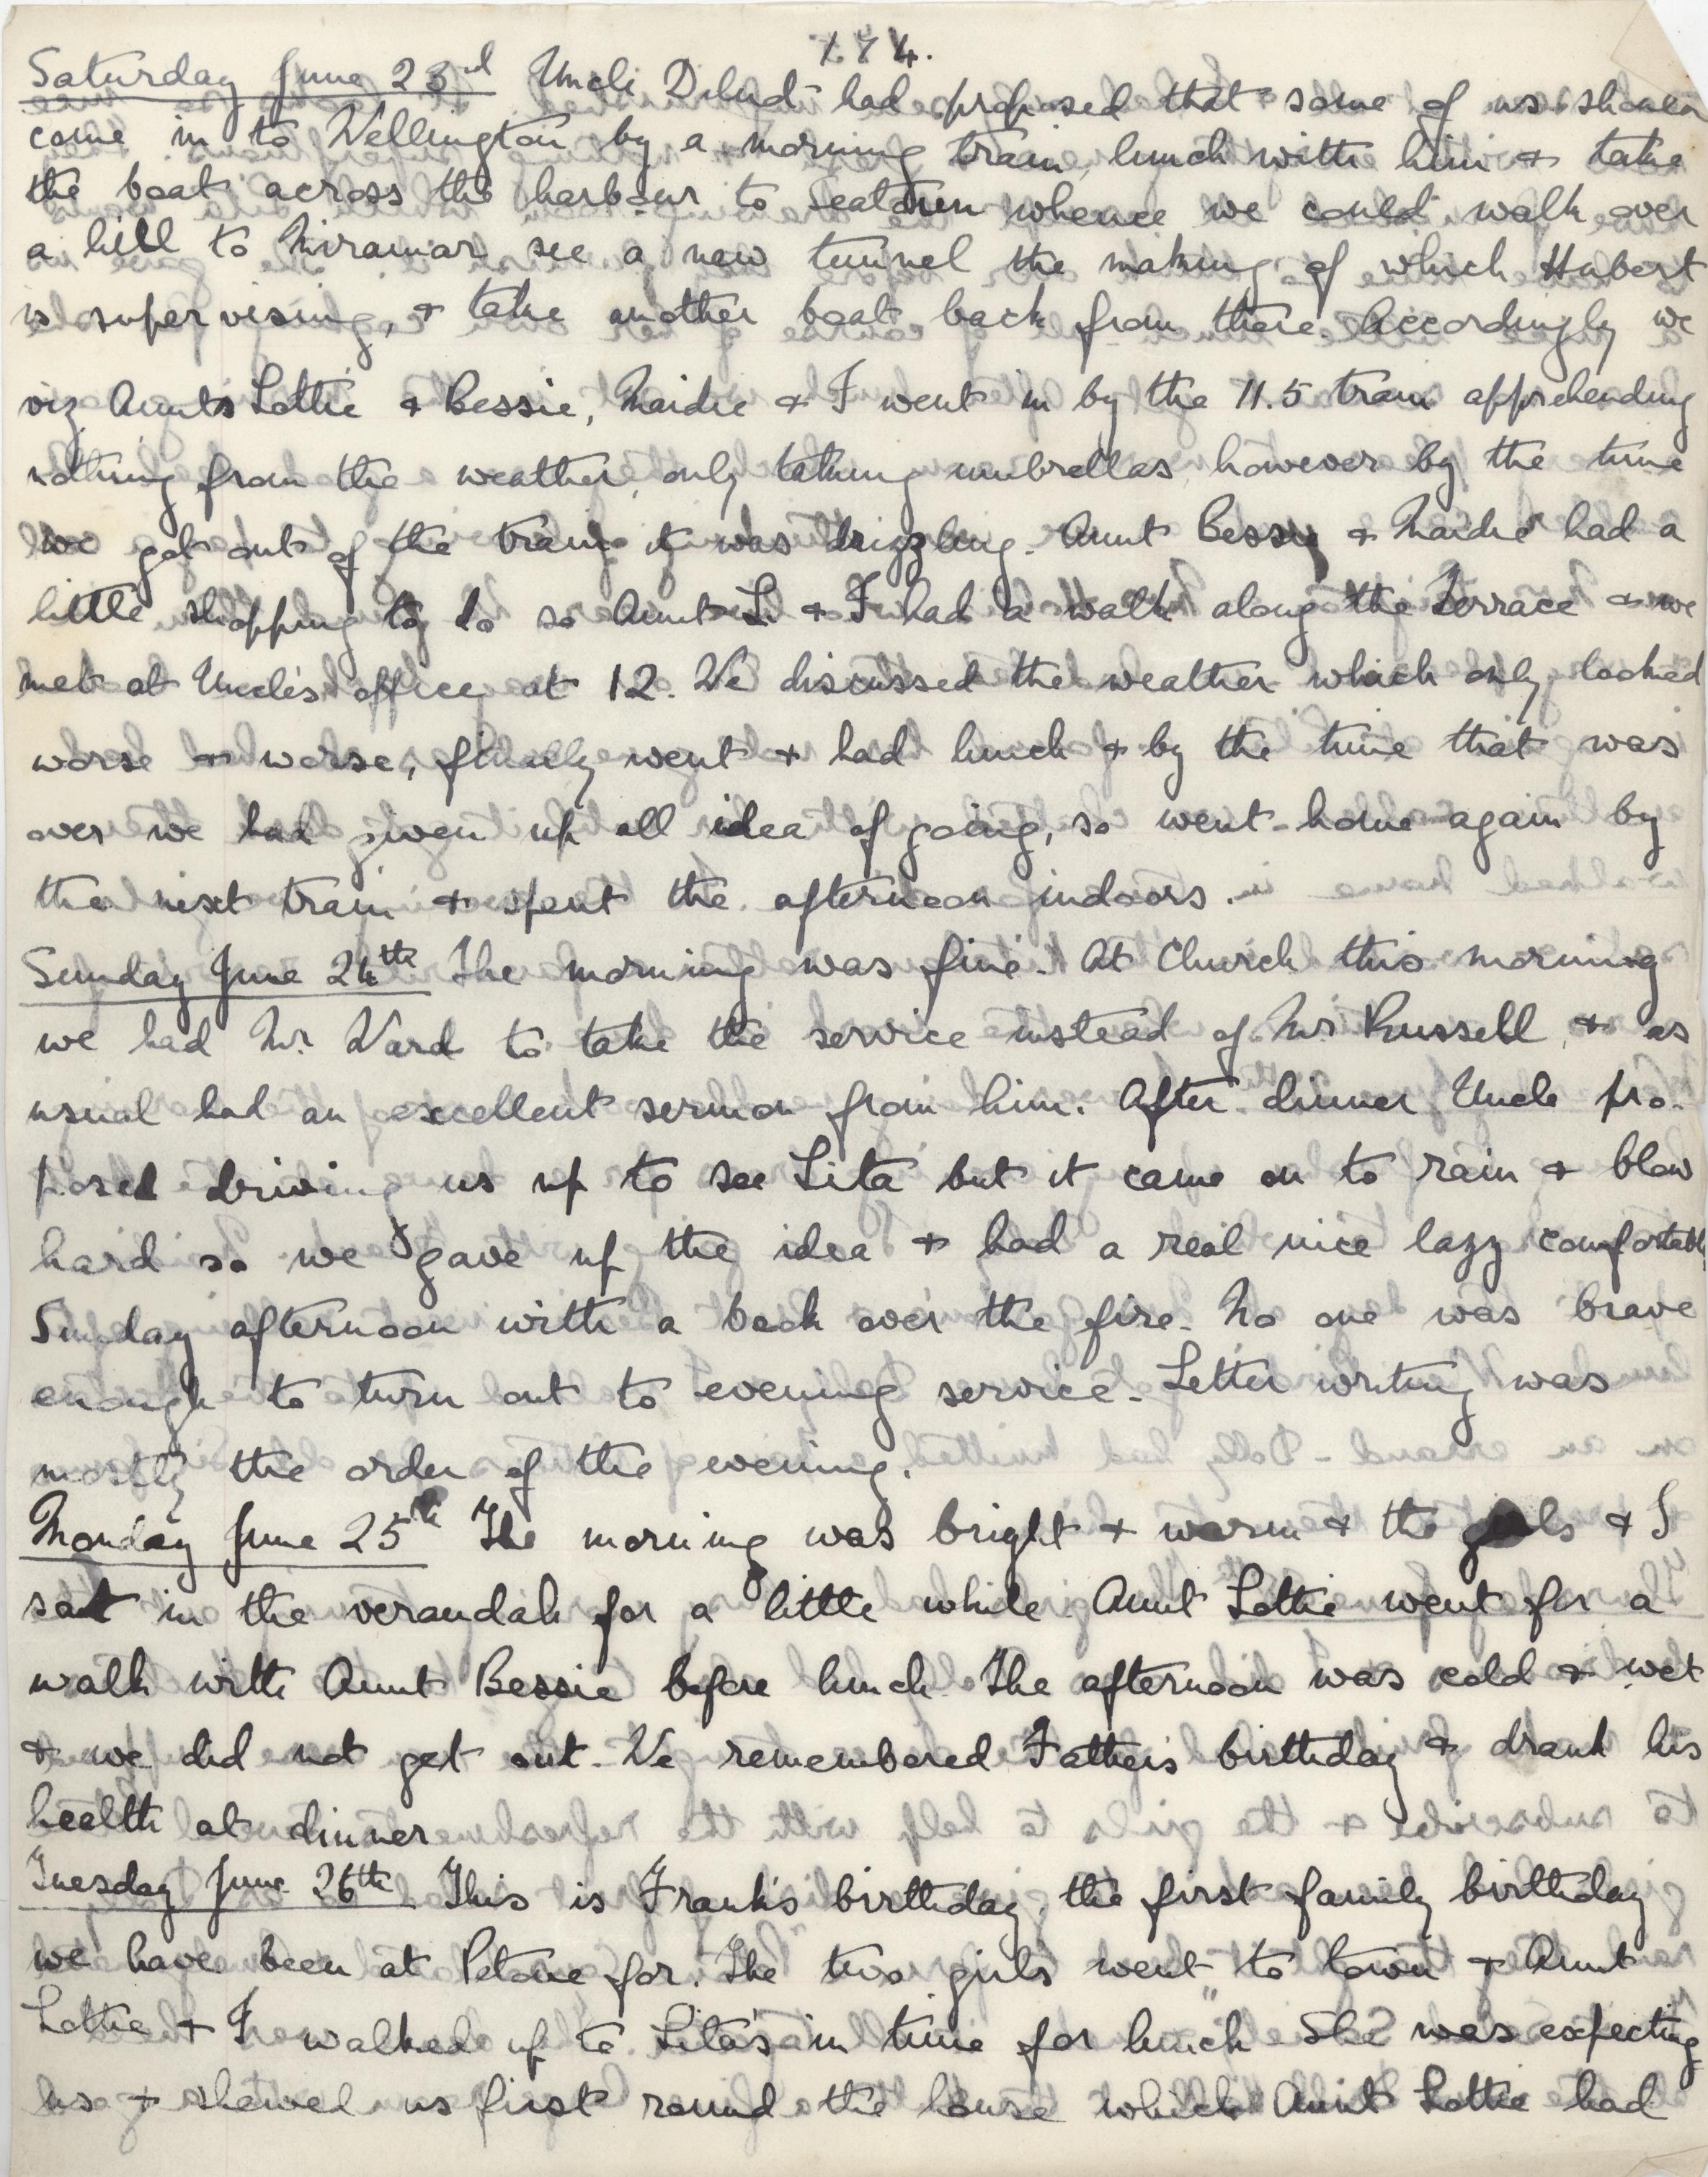 174.
Saturday June 23rd Uncle had proposed that some of us should
come in to Wellington by a morning train, lunch with him & take
the boat across the harbour to Seatoun whence we could walk over
a hill to Miramar, see a new tunnel the making of which Hubert
is supervising, & take another boat back from there. Accordingly we
viz Aunts Lottie & Bessie, Maidie & I went in by the 11.5 train apprehending
nothing from the weather, only taking umbrellas, however by the time
we got out of the train it was drizzling. Aunt Bessie & Maidie had a
little shopping to do so Aunt L. & I had a walk along the Terrace & we
met at Uncle's office at 12. We discussed the weather which only looked
worse & worse, finally went & had lunch & by the time that was
over we had given up all idea of going, so went home again by
the next train & spent the afternoon indoors.
Sunday June 24th The morning was fine. At Church this morning
we had Mr. Ward to take the service instead of Mr. Russell, & as
usual had an excellent sermon from him. After dinner Uncle pro-
posed driving us up to see Lita but it came on to rain & blow
hard so we gave up the idea & had a real nice lazy comfortable
Sunday afternoon with a book over the fire. No one was brave
enough to turn out to evening service. Letter writing was
mostly the order of the evening.
Monday June 25th The morning was bright & warm & the girls & I
sat in the verandah for a little while. Aunt Lottie went for a
walk with Aunt Bessie before lunch. The afternoon was cold & wet
& we did not get out. We remembered Father's birthday & drank his
health at dinner
Tuesday June 26th This is Frank's birthday, the first family birthday
we have been at Petone for. The two girls went to town & Aunt
Lottie & I walked up to Lita's in time for lunch. She was expecting
us & shewed us first round the house which Aunt Lottie had